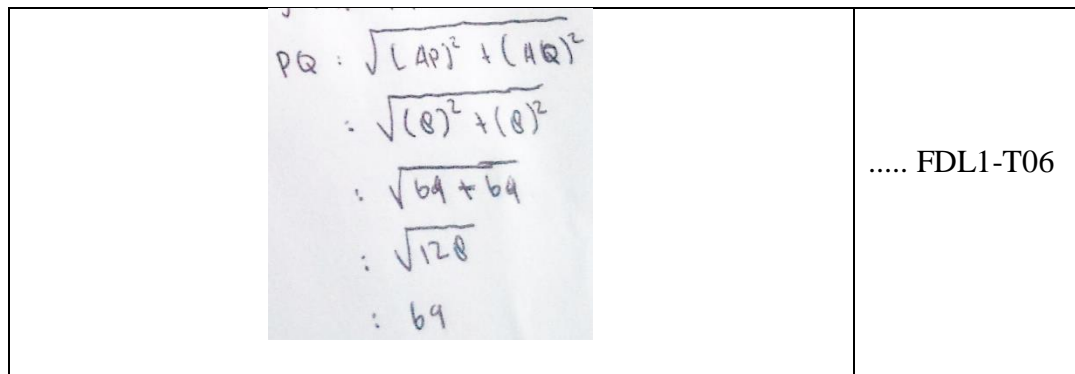 PQ : √(AP)² + (AQ)²
: √(8)² + (8)²
: √64 + 64
: √128
: 64
..... FDL1-T06